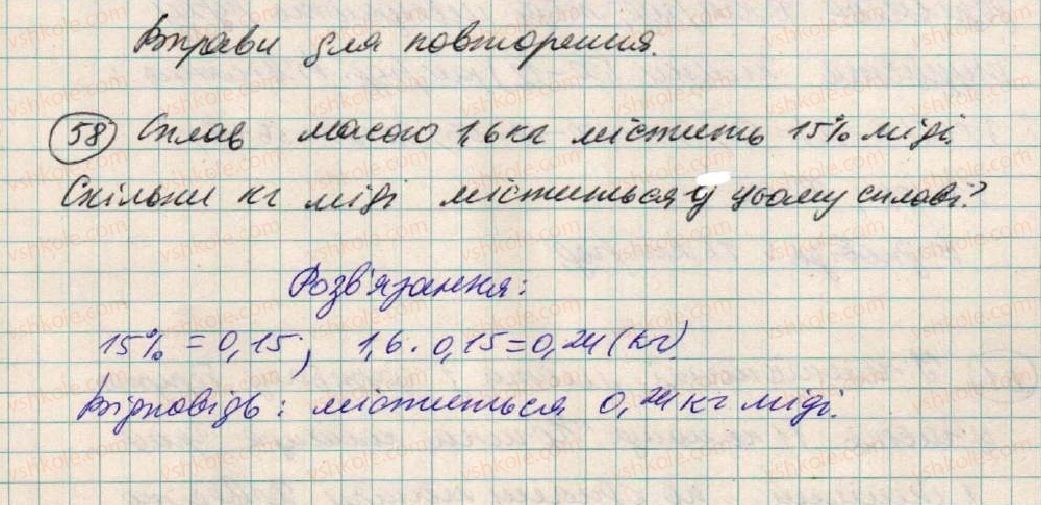 Вправи для повторення.
58 Сплав масою 1,6 кг містить 15% міді.
Скільки кг міді міститься у цьому сплаві?
Розв'язання:
15% = 0,15; 1,6 · 0,15 = 0,24 (кг)
Відповідь: міститься 0,24 кг міді.